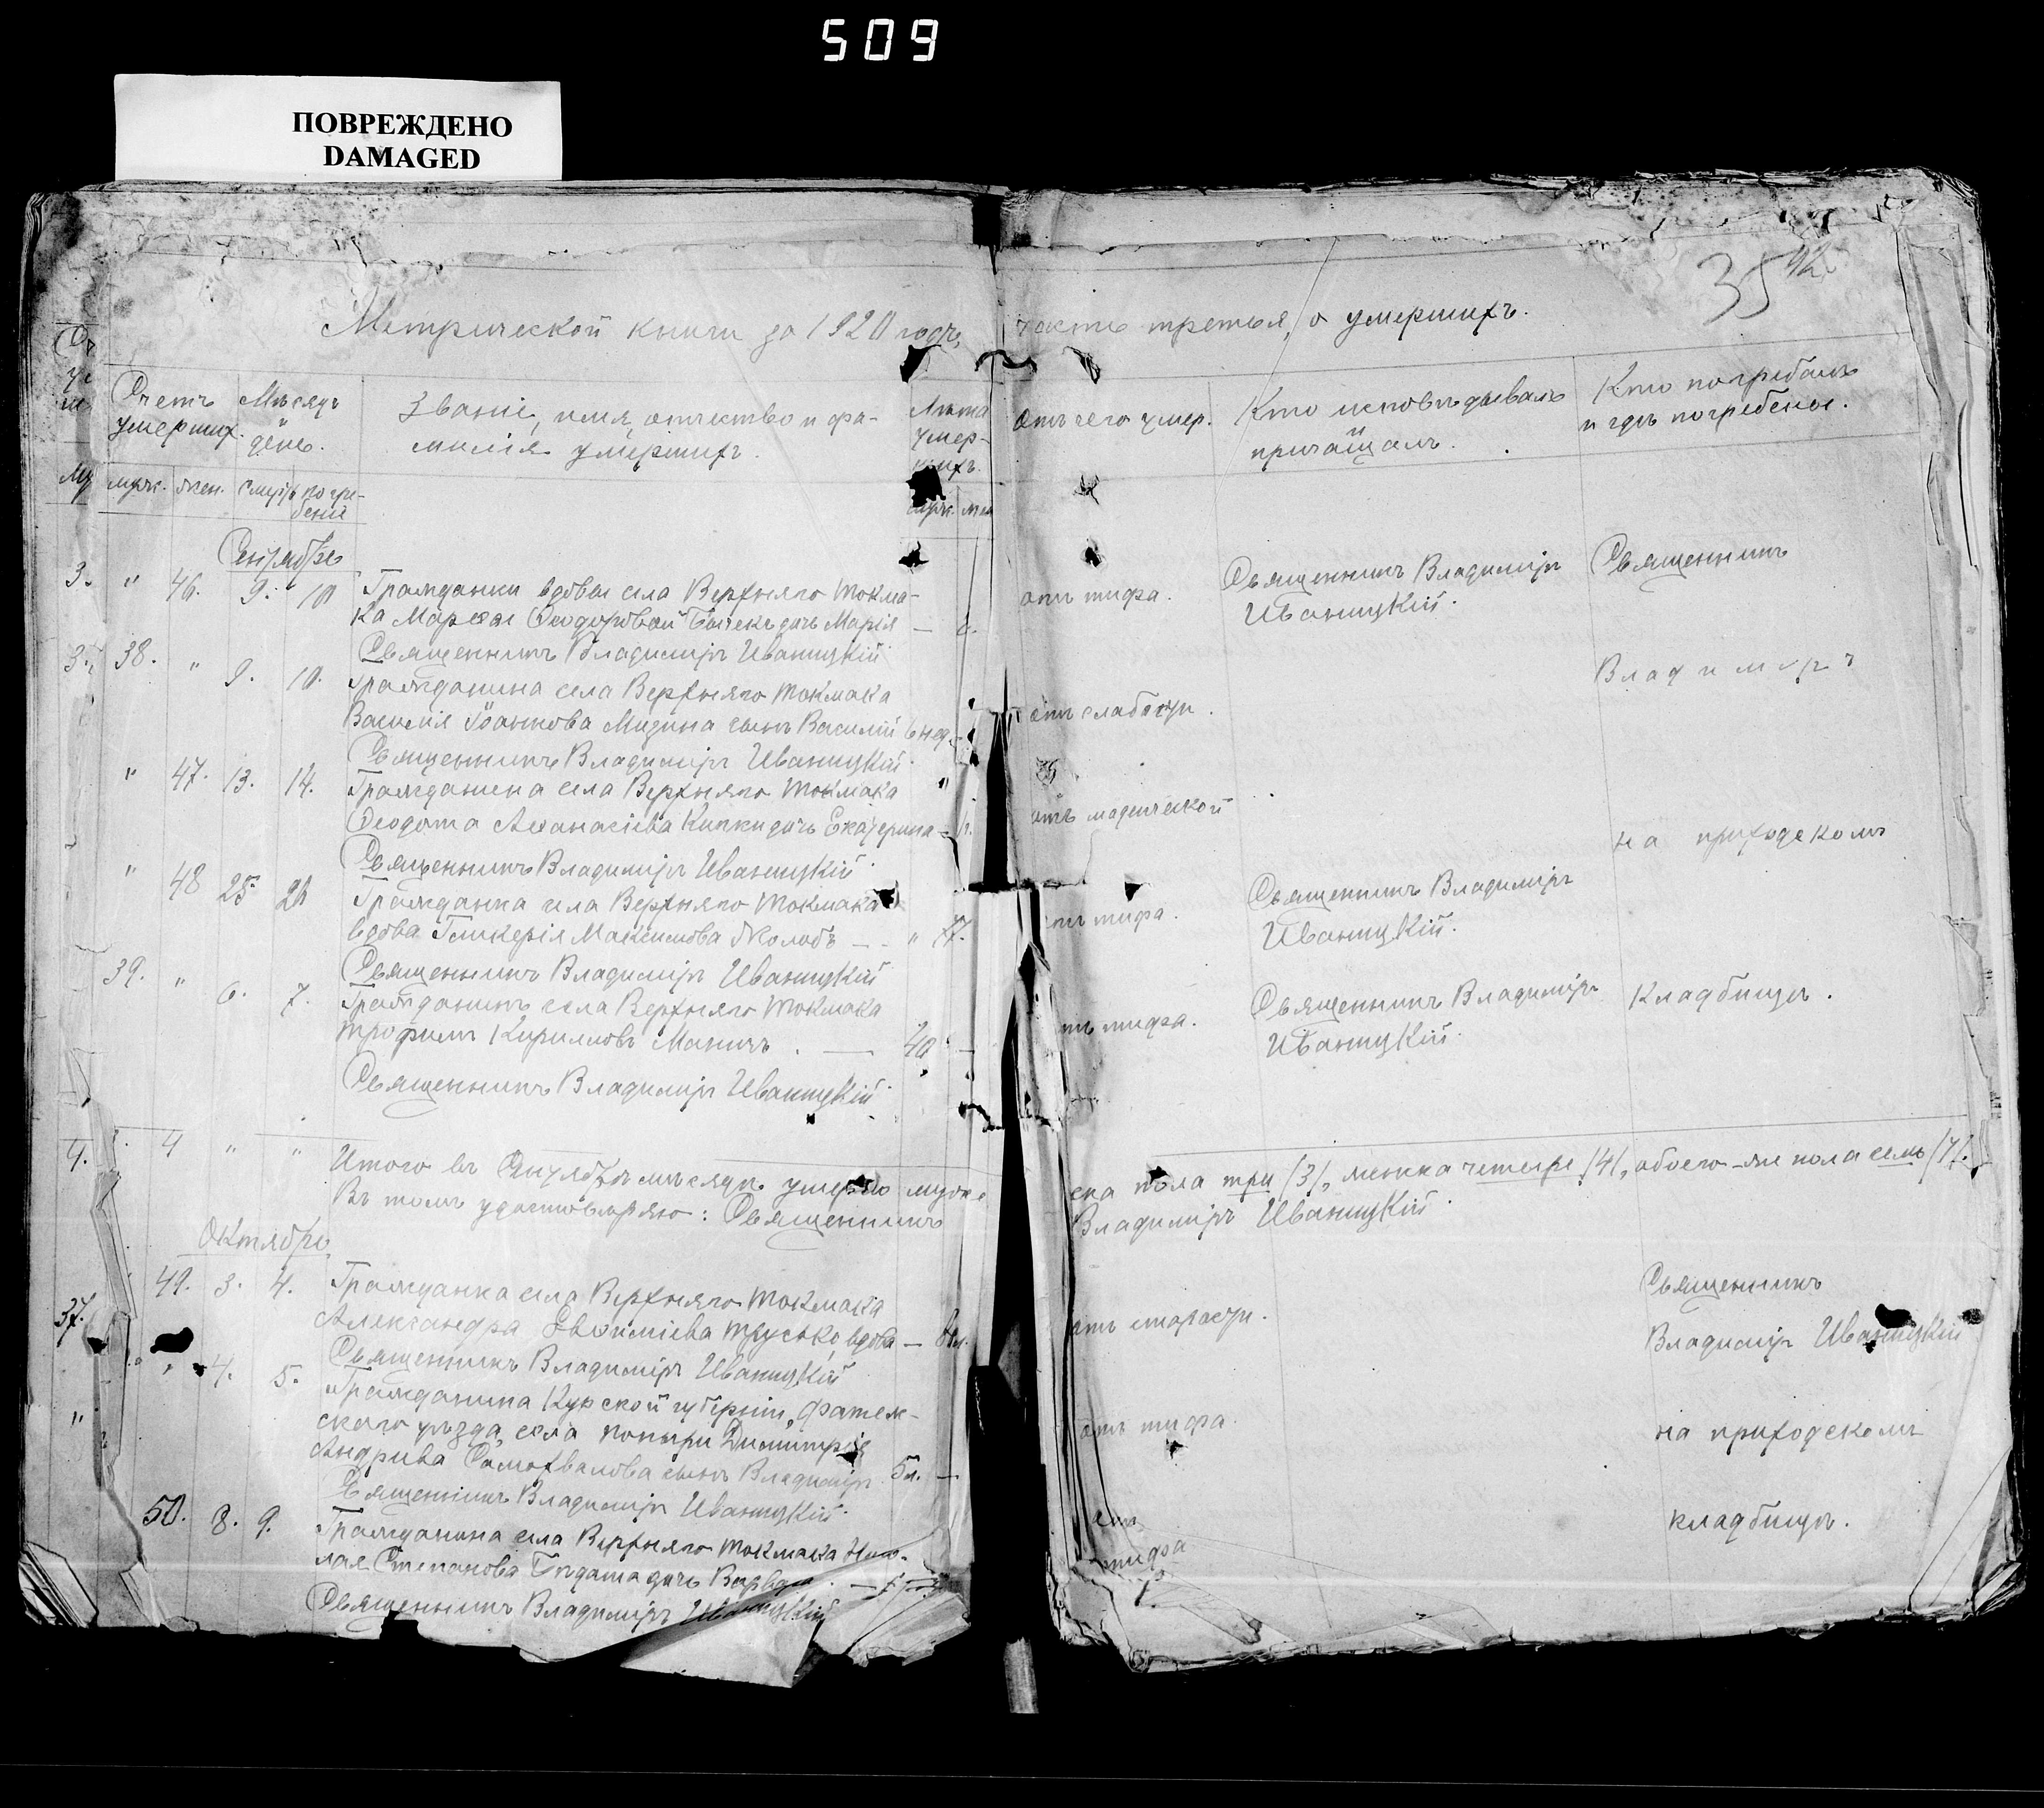 509
ПОВРЕЖДЕНО
DAMAGED
35
Метрической книги за 1920 годъ, часть третья, о умершихъ.
Счетъ умершихъ.
Мѣсяцъ и день.
Званіе, имя, отчество и фамилія умершихъ.
Лѣта умершихъ.
Отъ чего умер.
Кто исповѣдывалъ и причащалъ.
Кто погребалъ и гдѣ погребены.
муж. жен. смерть погребеніе
муж. жен
Сентябрь
" 46. 9. 10 Гражданки вдовы села Верхняго Токма-
ка Марѳы Ѳеодоровой дочь Марія —
отъ тифа.
Священникъ Владиміръ
Иваницкій.
Священникъ
Священникъ Владиміръ Иваницкій
38. " 9. 10. Гражданина села Верхняго Токмака
Василія Іоаннова Мизина сынъ Василій 6 нед. —
отъ слабости.
Владимиръ
Священникъ Владиміръ Иваницкій.
" 47. 13. 14. Гражданина села Верхняго Токмака "
Ѳеодота Аѳанасіева дочь Екатерина —
отъ младенческой
на приходскомъ
Священникъ Владиміръ Иваницкій.
" 48 25 26 Гражданка села Верхняго Токмака
вдова Гликерія Максимова — - " 77.
отъ тифа.
Священникъ Владиміръ
Иваницкій.
Священникъ Владиміръ Иваницкій
39. " 6. 7. Гражданинъ села Верхняго Токмака
Трофимъ Кирилловъ . — 40 —
отъ тифа.
Священникъ Владиміръ
Иваницкій.
кладбищѣ.
Священникъ Владиміръ Иваницкій.
4. 4 " " Итого въ Сентябрѣ мѣсяцѣ умерло мужескаго пола три /3/, женска четыре /4/, обоего-же пола семь /7/.
Въ томъ удостовѣряю: Священникъ Владиміръ Иваницкій.
Октябрь
37.
49. 3. 4. Гражданка села Верхняго Токмака
Александра Евфиміева вдова —
отъ старости.
Священникъ
Владиміръ Иваницкій
Священникъ Владиміръ Иваницкій
" 4. 5. Гражданина Курской губерніи, Фатеж-
скаго уѣзда, села Поныри Димитрія
Андреева Самохвалова сынъ Владиміръ 5 л. —
отъ тифа.
на приходскомъ
Священникъ Владиміръ Иваницкій.
50. 8. 9. Гражданина села Верхняго Токмака Нико-
лая Степанова дочь Варвара . —
отъ
тифа
кладбищѣ.
Священникъ Владиміръ Иваницкій